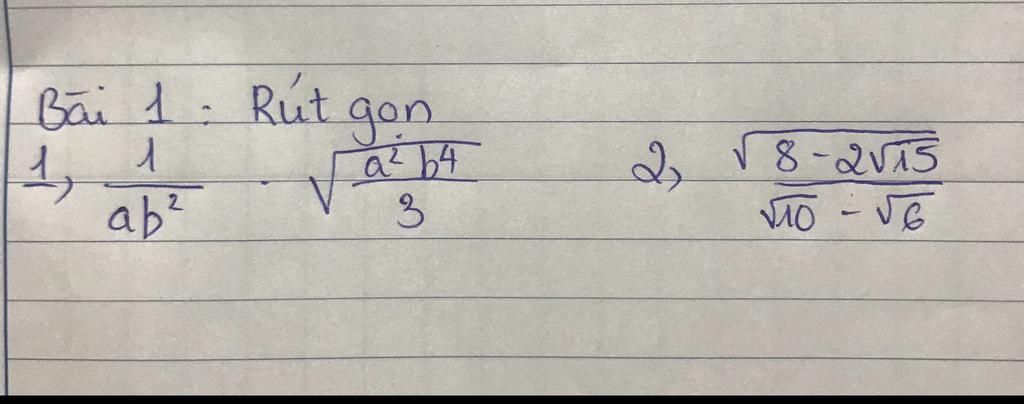 Bài 1 : Rút gọn
1, \frac{1}{ab^2} \cdot \sqrt{\frac{a^2 b^4}{3}} 2, \frac{\sqrt{8 - 2\sqrt{15}}}{\sqrt{10} - \sqrt{6}}